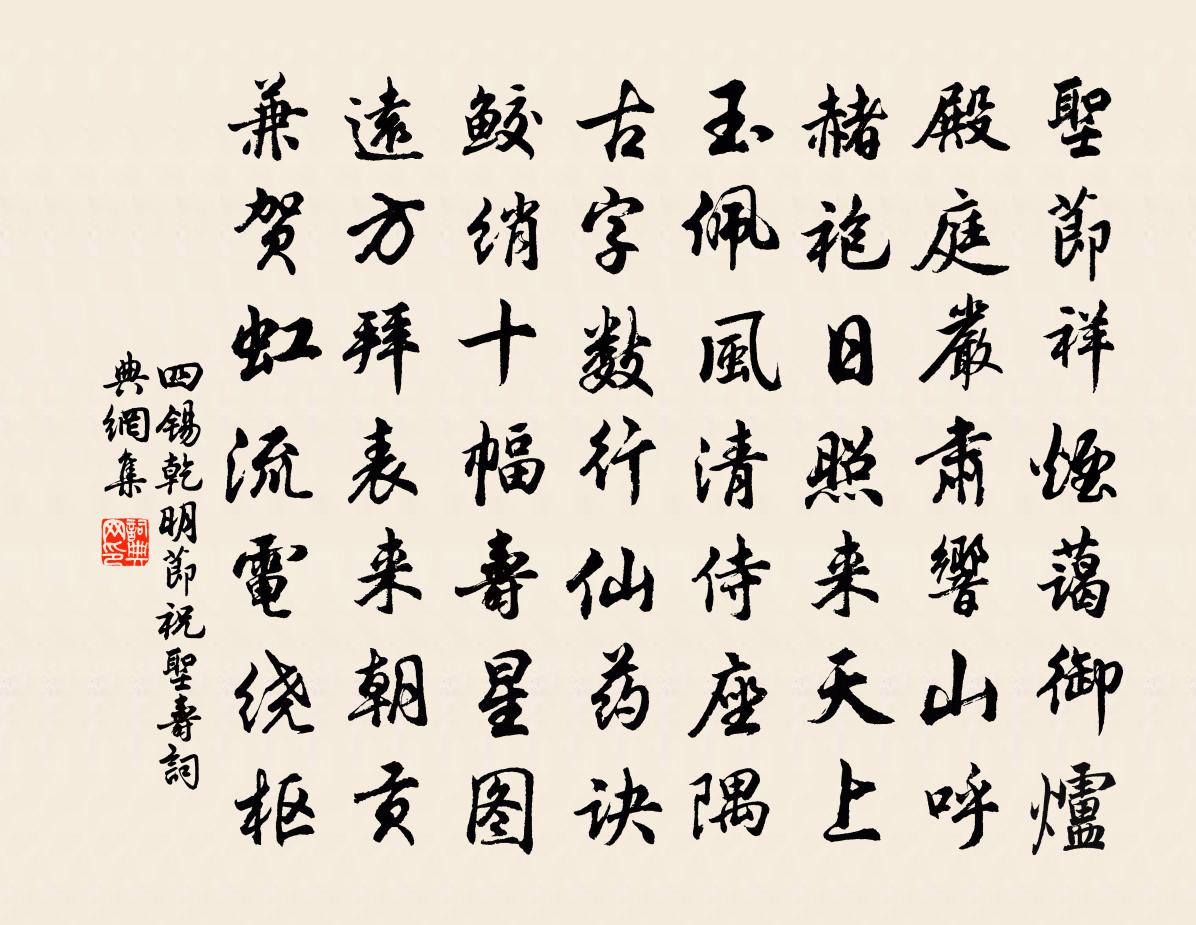 聖節祥煙藹御爐
殿庭嚴肅響山呼
赭袍日照来天上
玉佩風清侍座隅
古字数行仙药诀
鲛绡十幅壽星图
遠方拜表来朝贡
兼贺虹流電绕枢
四锡乾明節祝聖壽詞
典網集
詞典
网印